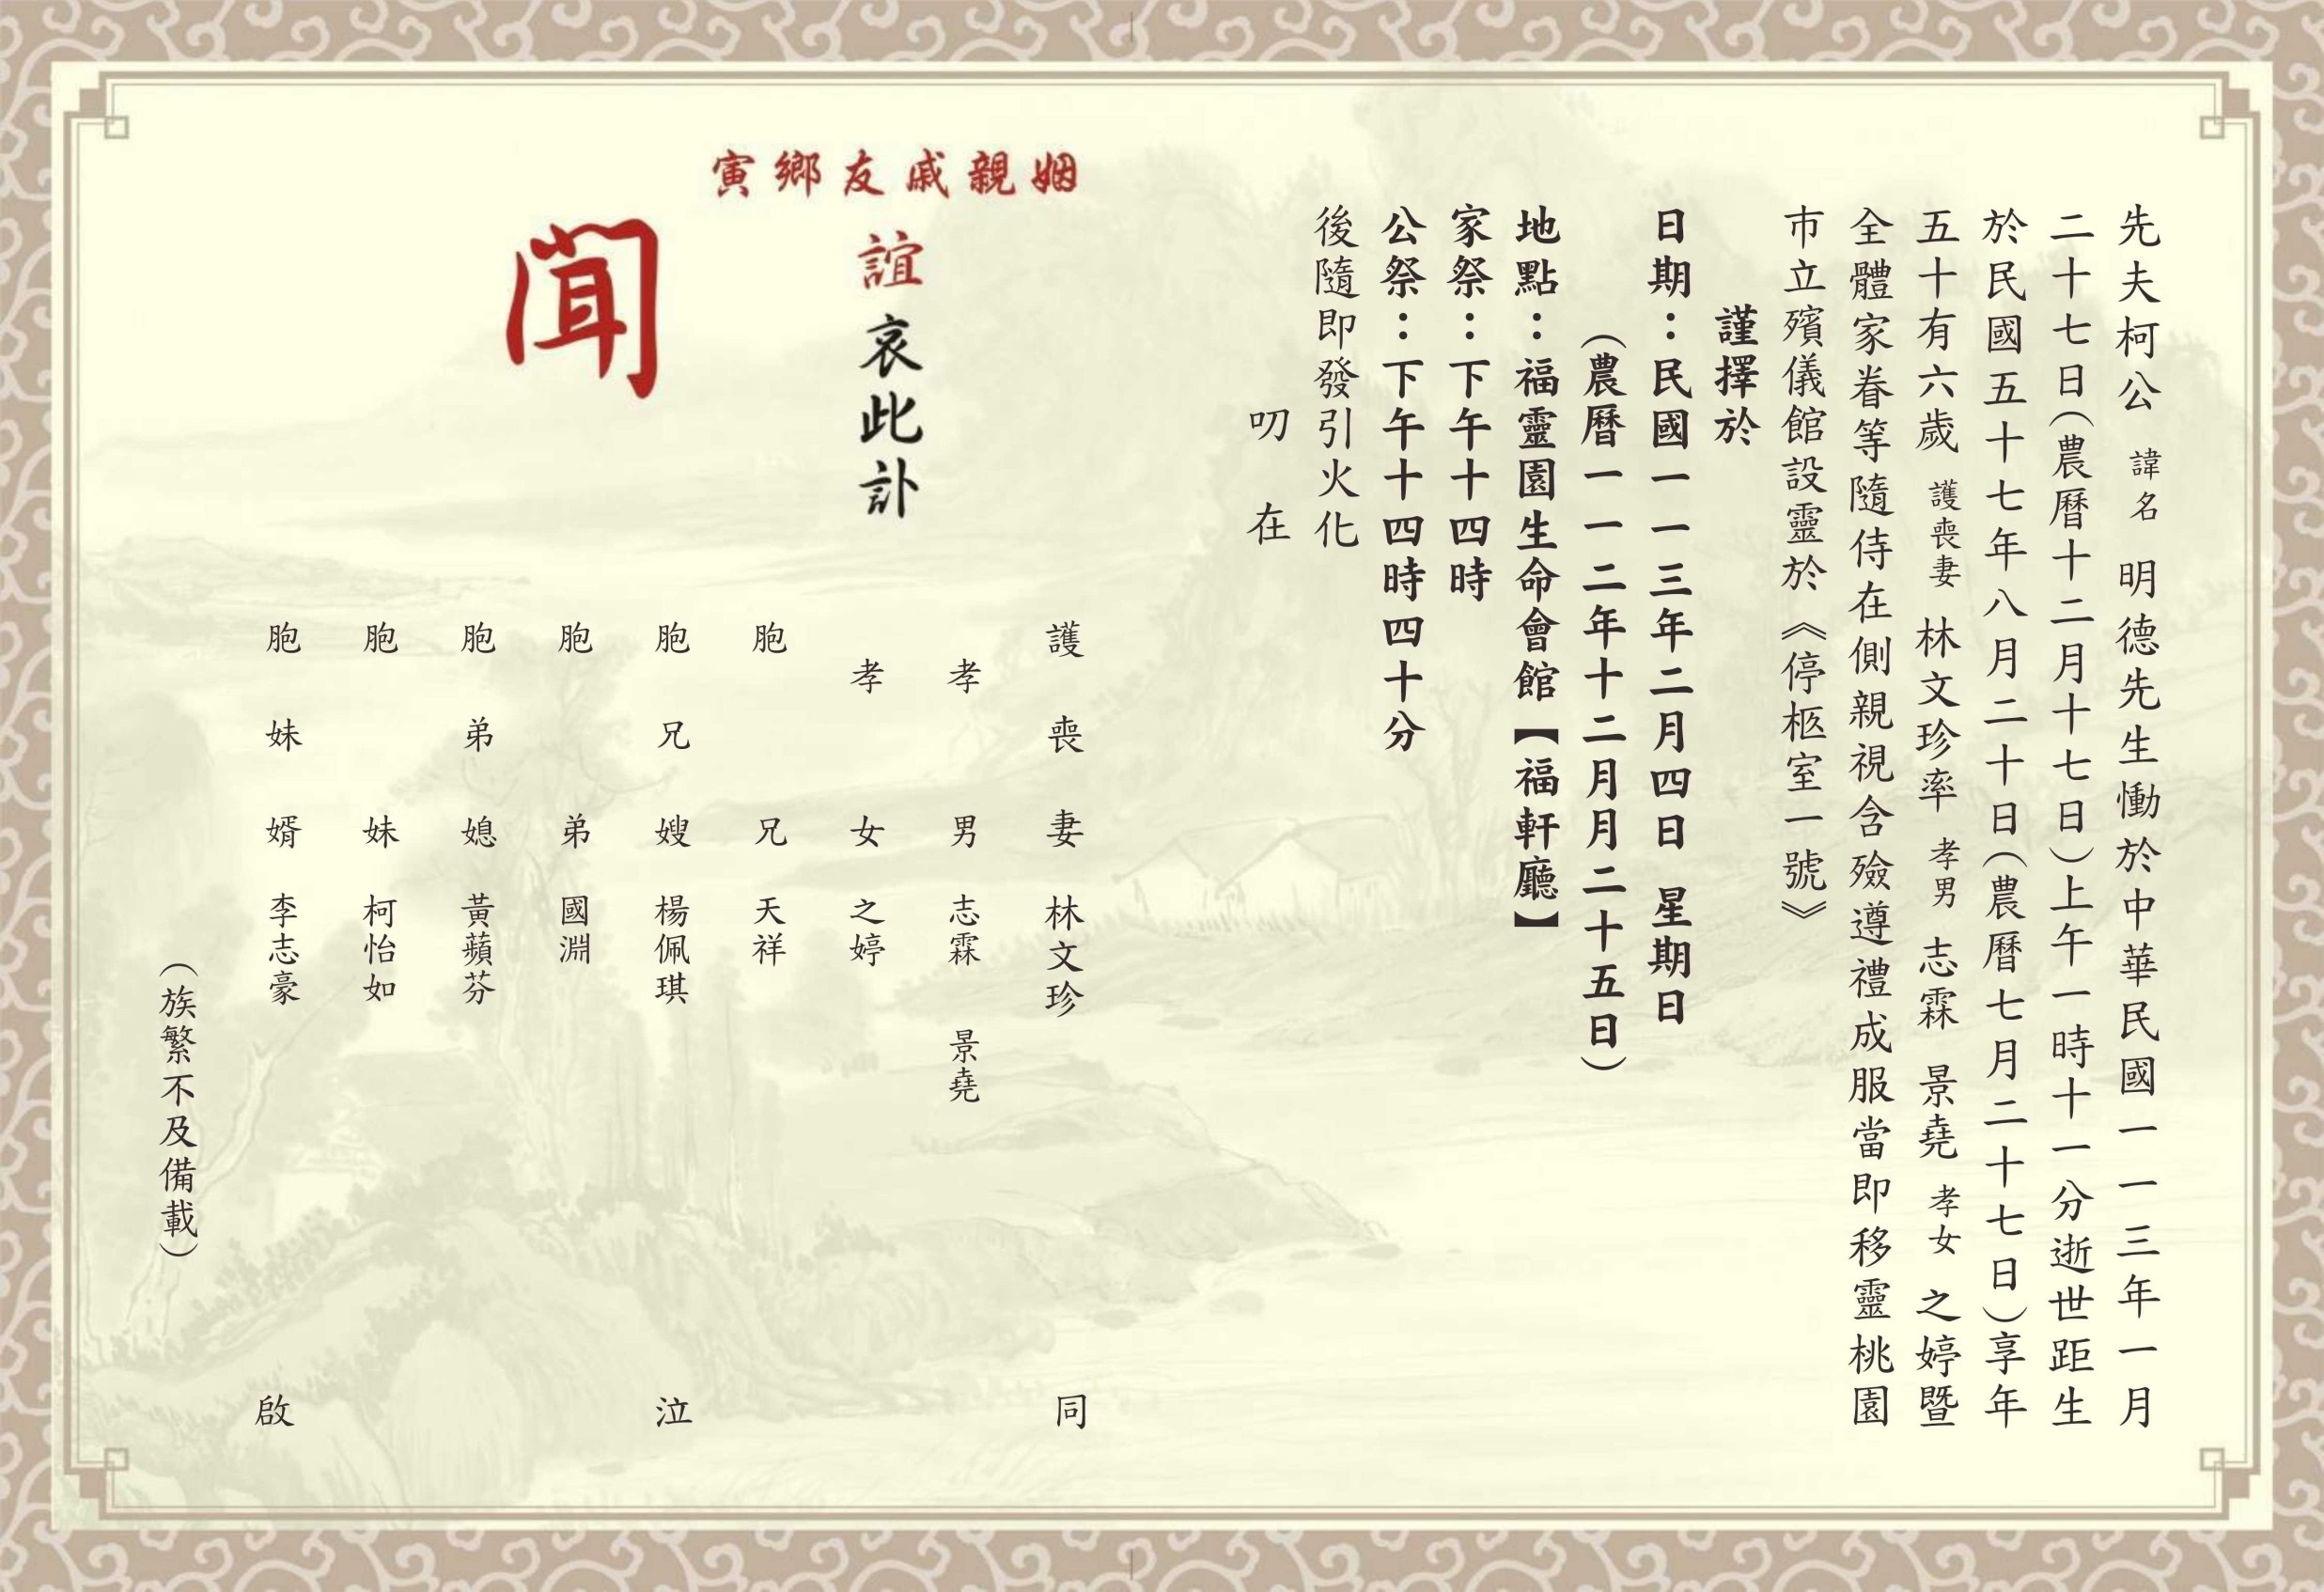 先夫柯公 諱名 明德先生慟於中華民國一一三年一月
二十七日(農曆十二月十七日)上午一時十一分逝世距生
於民國五十七年八月二十日(農曆七月二十七日)享年
五十有六歲 護喪妻 林文珍率 孝男 志霖 景堯 孝女 之婷暨
全體家眷等隨侍在側親視含殮遵禮成服當即移靈桃園
市立殯儀館設靈於《停柩室一號》
謹擇於
日期：民國一一三年二月四日 星期日
(農曆一一二年十二月月二十五日)
地點：福靈園生命會館【福軒廳】
家祭：下午十四時
公祭：下午十四時四十分
後隨即發引火化
叨在
姻親戚友鄉寅
誼哀此訃
聞
護喪妻 林文珍
孝男 志霖 景堯
孝女 之婷
胞兄 天祥
胞兄嫂 楊佩琪
胞弟 國淵
胞弟媳 黃蘋芬
胞妹 柯怡如
胞妹婿 李志豪
(族繁不及備載)
同泣啟